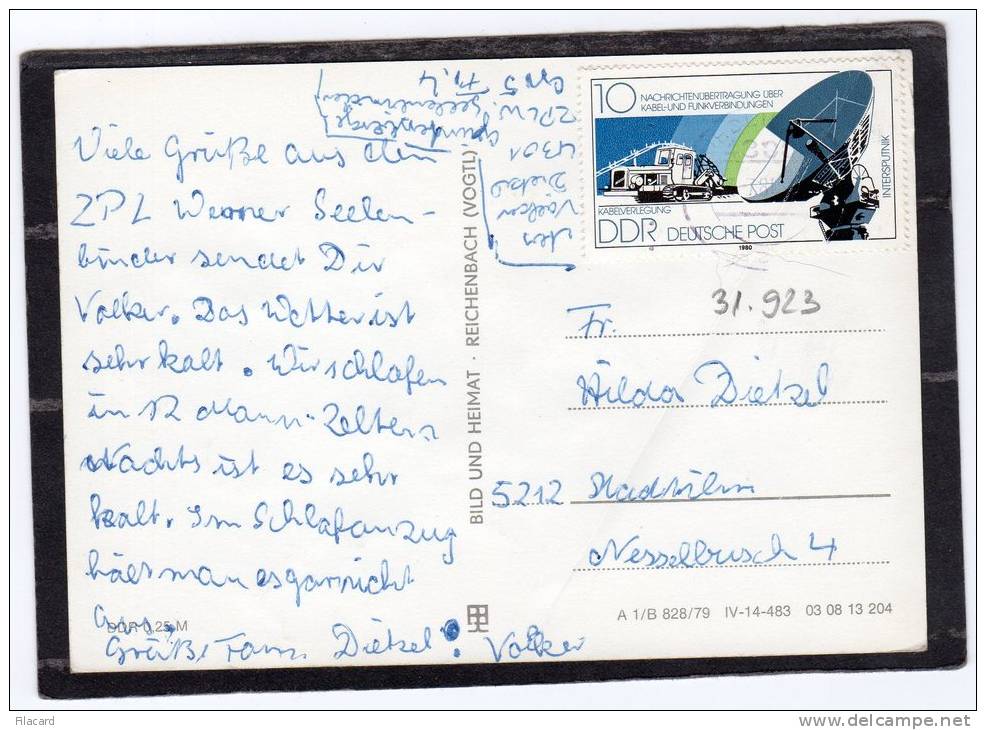 Viele Grüße aus dem
ZPL Werner Seelen-
binder sendet Dir
Volker. Das Wetter ist
sehr kalt. Wir schlafen
in 12 Mann-Zelten
Nachts ist es sehr
kalt. Im Schlafanzug
hält man es gar nicht
aus.
Grüße Fam. Dietzel. Volker
Volker
Dietzel
4301
ZPL W.
Seelenbinder
DDR 0,25 M
BILD UND HEIMAT · REICHENBACH (VOGTL)
10 NACHRICHTENÜBERTRAGUNG ÜBER
KABEL-UND FUNKVERBINDUNGEN
INTERSPUTNIK
KABELVERLEGUNG
DDR DEUTSCHE POST
1980
31.923
Fr.
Hilda Dietzel
5212 Stadtilm
Nesselbusch 4
A 1/B 828/79 IV-14-483 03 08 13 204
Filacard
www.delcampe.net